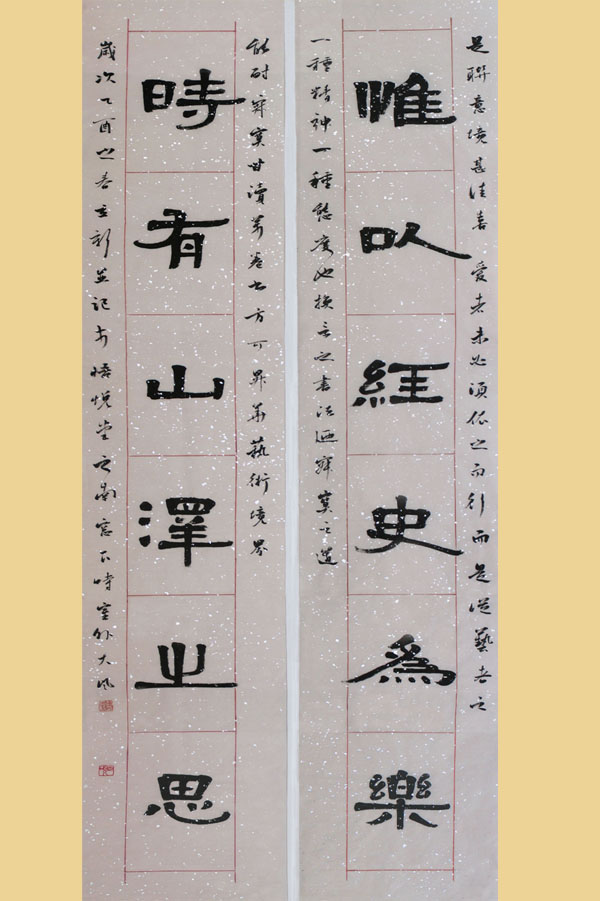 惟㕥經史為樂
時有山澤之思
是聯意境甚佳喜愛者未必須依之而行而是從藝者之
一種精神一種態度也換言之書法迺寂寞之道
能耐寂寞甘讀萬卷書方可昇華藝術境界
歲次乙酉之春立新並記於悟悅堂之南窗下時室外大風